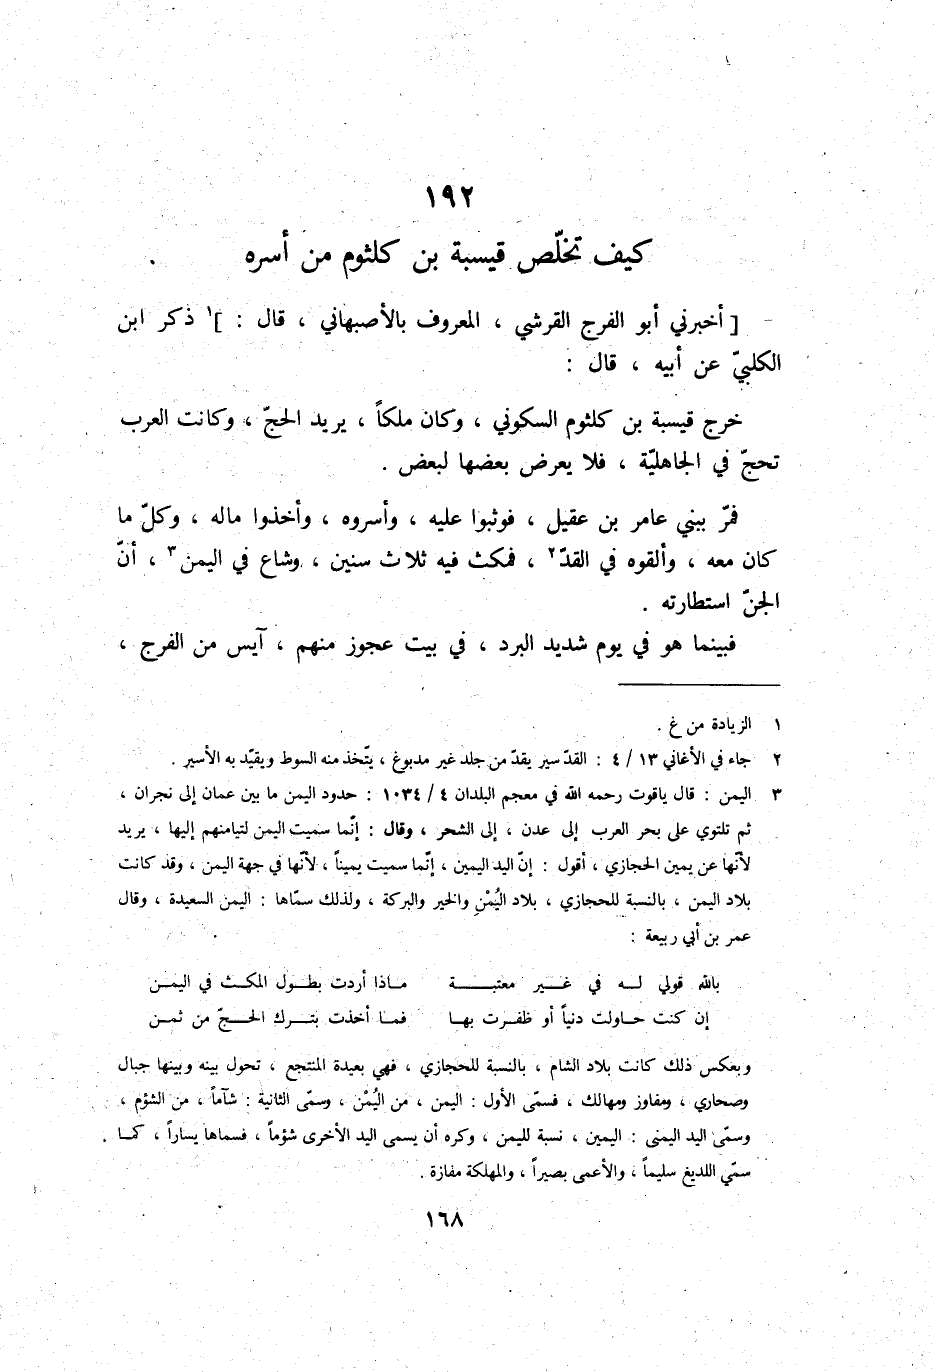 ١٩٢
كيف تخلّص قيسبة بن كلثوم من أسره
[ أخبرني أبو الفرج القرشي ، المعروف بالأصبهاني ، قال : ]١ ذكر ابن
الكلبيّ عن أبيه ، قال :
خرج قيسبة بن كلثوم السكوني ، وكان ملكاً ، يريد الحجّ ، وكانت العرب
تحجّ في الجاهليّة ، فلا يعرض بعضها لبعض .
فمرّ ببني عامر بن عقيل ، فوثبوا عليه ، وأسروه ، وأخذوا ماله ، وكلّ ما
كان معه ، وألقوه في القدّ٢ ، فمكث فيه ثلاث سنين ، وشاع في اليمن٣ ، أنّ
الجنّ استطارته .
فبينما هو في يوم شديد البرد ، في بيت عجوز منهم ، آيس من الفرج ،
١ الزيادة من غ .
٢ جاء في الأغاني ١٣ / ٤ : القدّ سير يقدّ من جلد غير مدبوغ ، يتّخذ منه السوط ويقيّد به الأسير .
٣ اليمن : قال ياقوت رحمه الله في معجم البلدان ٤ / ١٠٣٤ : حدود اليمن ما بين عمان إلى نجران ،
ثم تلتوي على بحر العرب إلى عدن ، إلى الشحر ، وقال : إنّما سميت اليمن لتيامنهم إليها ، يريد
لأنّها عن يمين الحجازي ، أقول : إنّ اليد اليمين ، إنّما سميت يميناً ، لأنّها في جهة اليمن ، وقد كانت
بلاد اليمن ، بالنسبة للحجازي ، بلاد اليُمْنِ والخير والبركة ، ولذلك سمّاها : اليمن السعيدة ، وقال
عمر بن أبي ربيعة :
بالله قولي لـه في غـير معتبـة مـاذا أردت بطـول المكـث في اليمـن
إن كنت حـاولت دنياً أو ظفـرت بهـا فمـا أخذت بتـرك الحـجّ من ثمـن
وبعكس ذلك كانت بلاد الشام ، بالنسبة للحجازي ، فهي بعيدة المنتجع ، تحول بينه وبينها جبال
وصحاري ، ومفاوز ومهالك ، فسمّى الأول : اليمن ، من اليُمْن ، وسمّى الثانية : شآماً ، من الشؤم ،
وسمّى اليد اليمنى : اليمين ، نسبة لليمن ، وكره أن يسمى اليد الأخرى شؤماً ، فسماها يساراً ، كمـا
سمّي اللديغ سليماً ، والأعمى بصيراً ، والمهلكة مفازة .
١٦٨